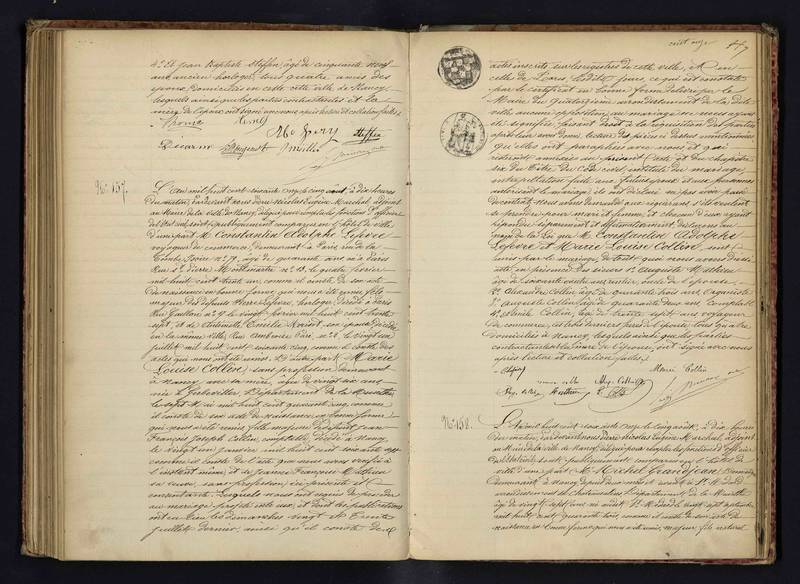 4° Et Jean Baptiste Steffen, âgé de cinquante neuf
ans ancien horloger, tous quatre amis des
époux, domiciliés en cette ville de Nancy,
lesquels ainsi que les parties contractantes et la
mère de l'époux ont signé avec nous après lecture et collation faites.
Steffen
N° 157.
L'an mil huit cent soixante onze le cinq août, à dix heures
du matin, par devant nous Pierre Nicolas Eugène Marchal, adjoint
au Maire de la ville de Nancy, délégué pour remplir les fonctions d'officier
de l'état civil, sont publiquement comparus en l'hôtel de ville
d'une part M. Constantin Adolphe Lefèvre
voyageur de commerce, demeurant à Paris, rue de la
Tombe Issoire n° 79, âgé de quarante ans, né à Paris
Rue St Pierre Montmartre n° 13, le quatre février
mil huit cent trente un, comme il conste de son acte
de naissance en bonne forme qui nous a été remis, fils
majeur des défunts Pierre Lefèvre, horloger, décédé à Paris
Rue Gaillon n° 9 le vingt février mil huit cent trente
sept, et de Antoinette Emilie Mariot son épouse décédée
en la même ville, Rue Ambroise Paré n° 2, le vingt un
juillet mil huit cent soixante cinq, comme il conste des
actes qui nous ont été remis. Et d'autre part Marie
Louise Collin, sans profession, demeurant
à Nancy avec sa mère, âgée de vingt six ans
née à Gerbeviller, Département de la Meurthe
le sept Mai mil huit cent quarante cinq, comme
il conste de son acte de naissance en bonne forme
qui nous a été remis, fille majeure de défunt Jean
François Joseph Collin, comptable, décédé à Nancy
le vingt un janvier mil huit cent soixante
comme il conste de l'acte que nous avons vérifié à
l'instant même, et de Jeanne Françoise Mathieu
sa veuve, sans profession, ici présente et
consentante. Lesquels nous ont requis de procéder
au mariage projeté entre eux, et dont les publications
ont eu lieu les dimanches vingt trois et trente
juillet dernier, ainsi qu'il conste des
actes inscrits sur les registres de cette ville, et en
celle de Paris lesdits jours, ce qui est constaté
par le certificat en bonne forme délivré par le
Maire du quatorzième arrondissement de la dite
ville, aucune opposition au mariage ne nous ayant
été signifiée, faisant droit à la réquisition des parties
après leur avoir donné lecture des pièces ci dessus mentionnées
qu'elles ont paraphées avec nous, et qui
resteront annexées au présent acte, et du chapitre
six du titre du Code civil intitulé du mariage,
interpellation faite aux futurs époux et aux personnes
autorisant le mariage, ils ont déclaré n'avoir pas fait
de contrat. Nous avons demandé aux requérants s'ils veulent
se prendre pour mari et femme, et chacun d'eux ayant
répondu séparément et affirmativement, déclarons au
nom de la loi que M. Constantin Adolphe
Lefèvre et Marie Louise Collin sont
unis par le mariage, de tout quoi nous avons dressé
acte en présence des sieurs 1° Auguste Mathieu
âgé de soixante quatre ans, rentier, oncle de l'épouse,
2° Alexandre Collin, âgé de quarante trois ans,
3° Auguste Collin, âgé de quarante deux ans, comptable
4° Collin, âgé de trente sept ans, voyageur
de commerce, ces trois derniers frères de l'épouse, tous quatre
domiciliés à Nancy, lesquels ainsi que les parties
contractantes et la mère de l'épouse, ont signé avec nous
après lecture et collation faites.
Marie Collin
Mathieu
N° 158.
L'an mil huit cent soixante onze le cinq août, à dix heures
du matin, par devant nous Pierre Nicolas Eugène Marchal, adjoint
au Maire de la ville de Nancy, délégué pour remplir les fonctions d'officier
de l'état civil, sont publiquement comparus en l'hôtel de
ville d'une part M. Michel Grandjean,
demeurant à Nancy depuis deux mois et avant à St Médard
arrondissement de Château Salins, Département de la Meurthe
âgé de vingt sept ans, né audit St Médard le vingt sept septembre
mil huit cent quarante trois, comme il conste de son acte de
naissance en bonne forme qui nous a été remis, majeur, fils naturel